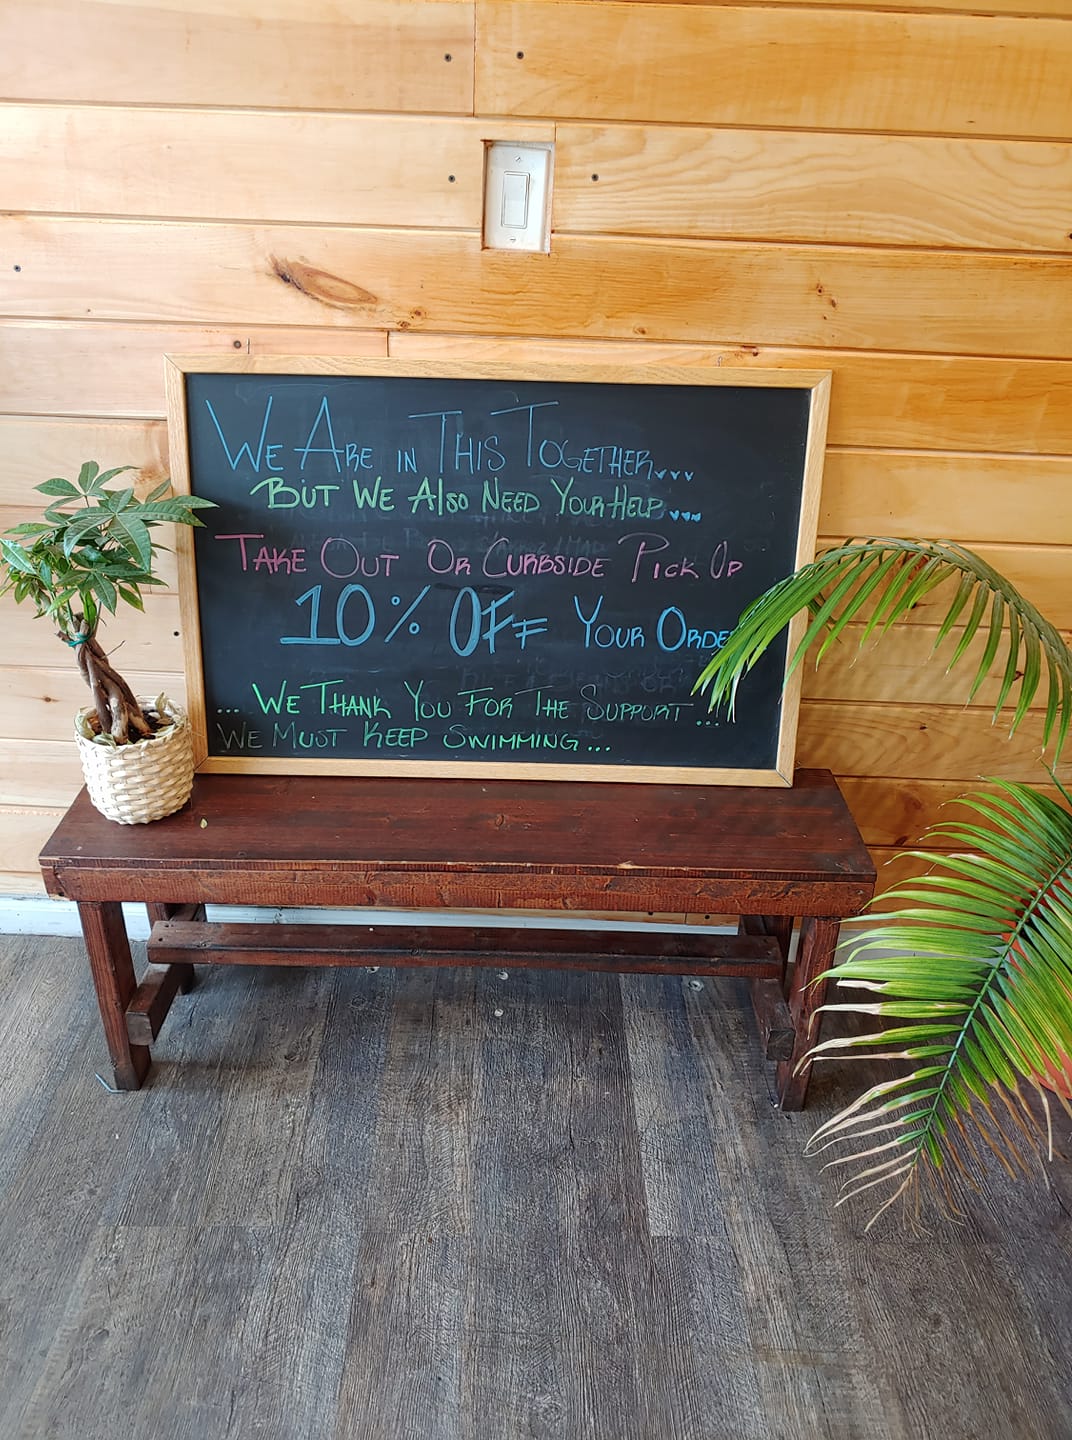 We Are in This Together...
But We Also Need Your Help...
Take Out Or Curbside Pick Up
10% Off Your Orde
... We Thank You For The Support ...
We Must Keep Swimming...